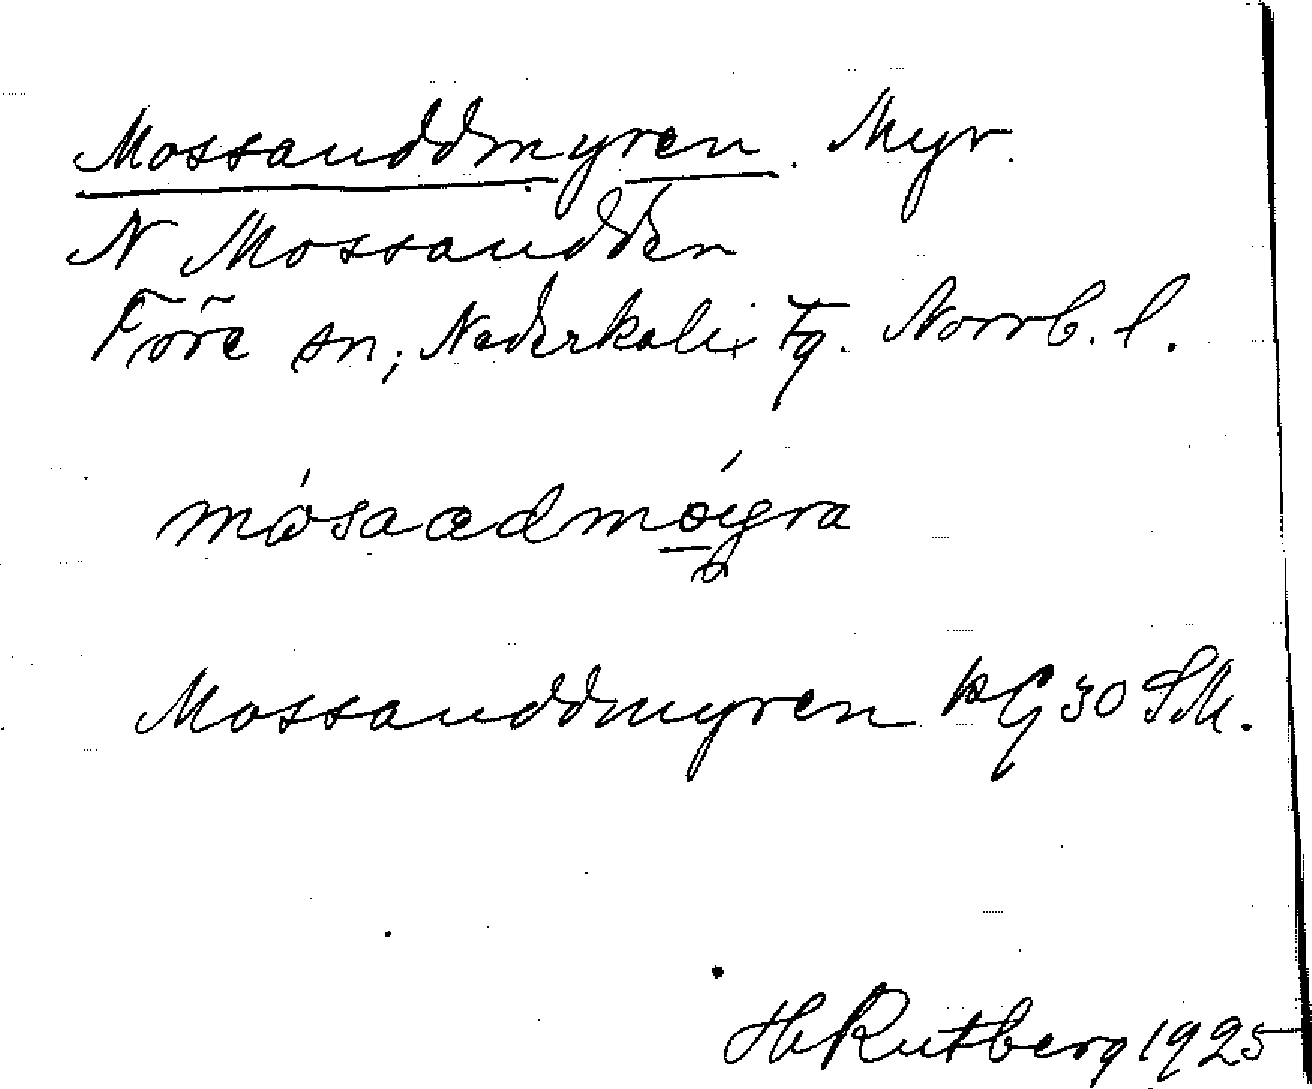 Mossauddmyren. Myr.
N Mossaudden
Töre sn; Nederkalix Tg. Norrb. l.
Mossauddmyren KG 30 SM.
Hb Rutberg 1925